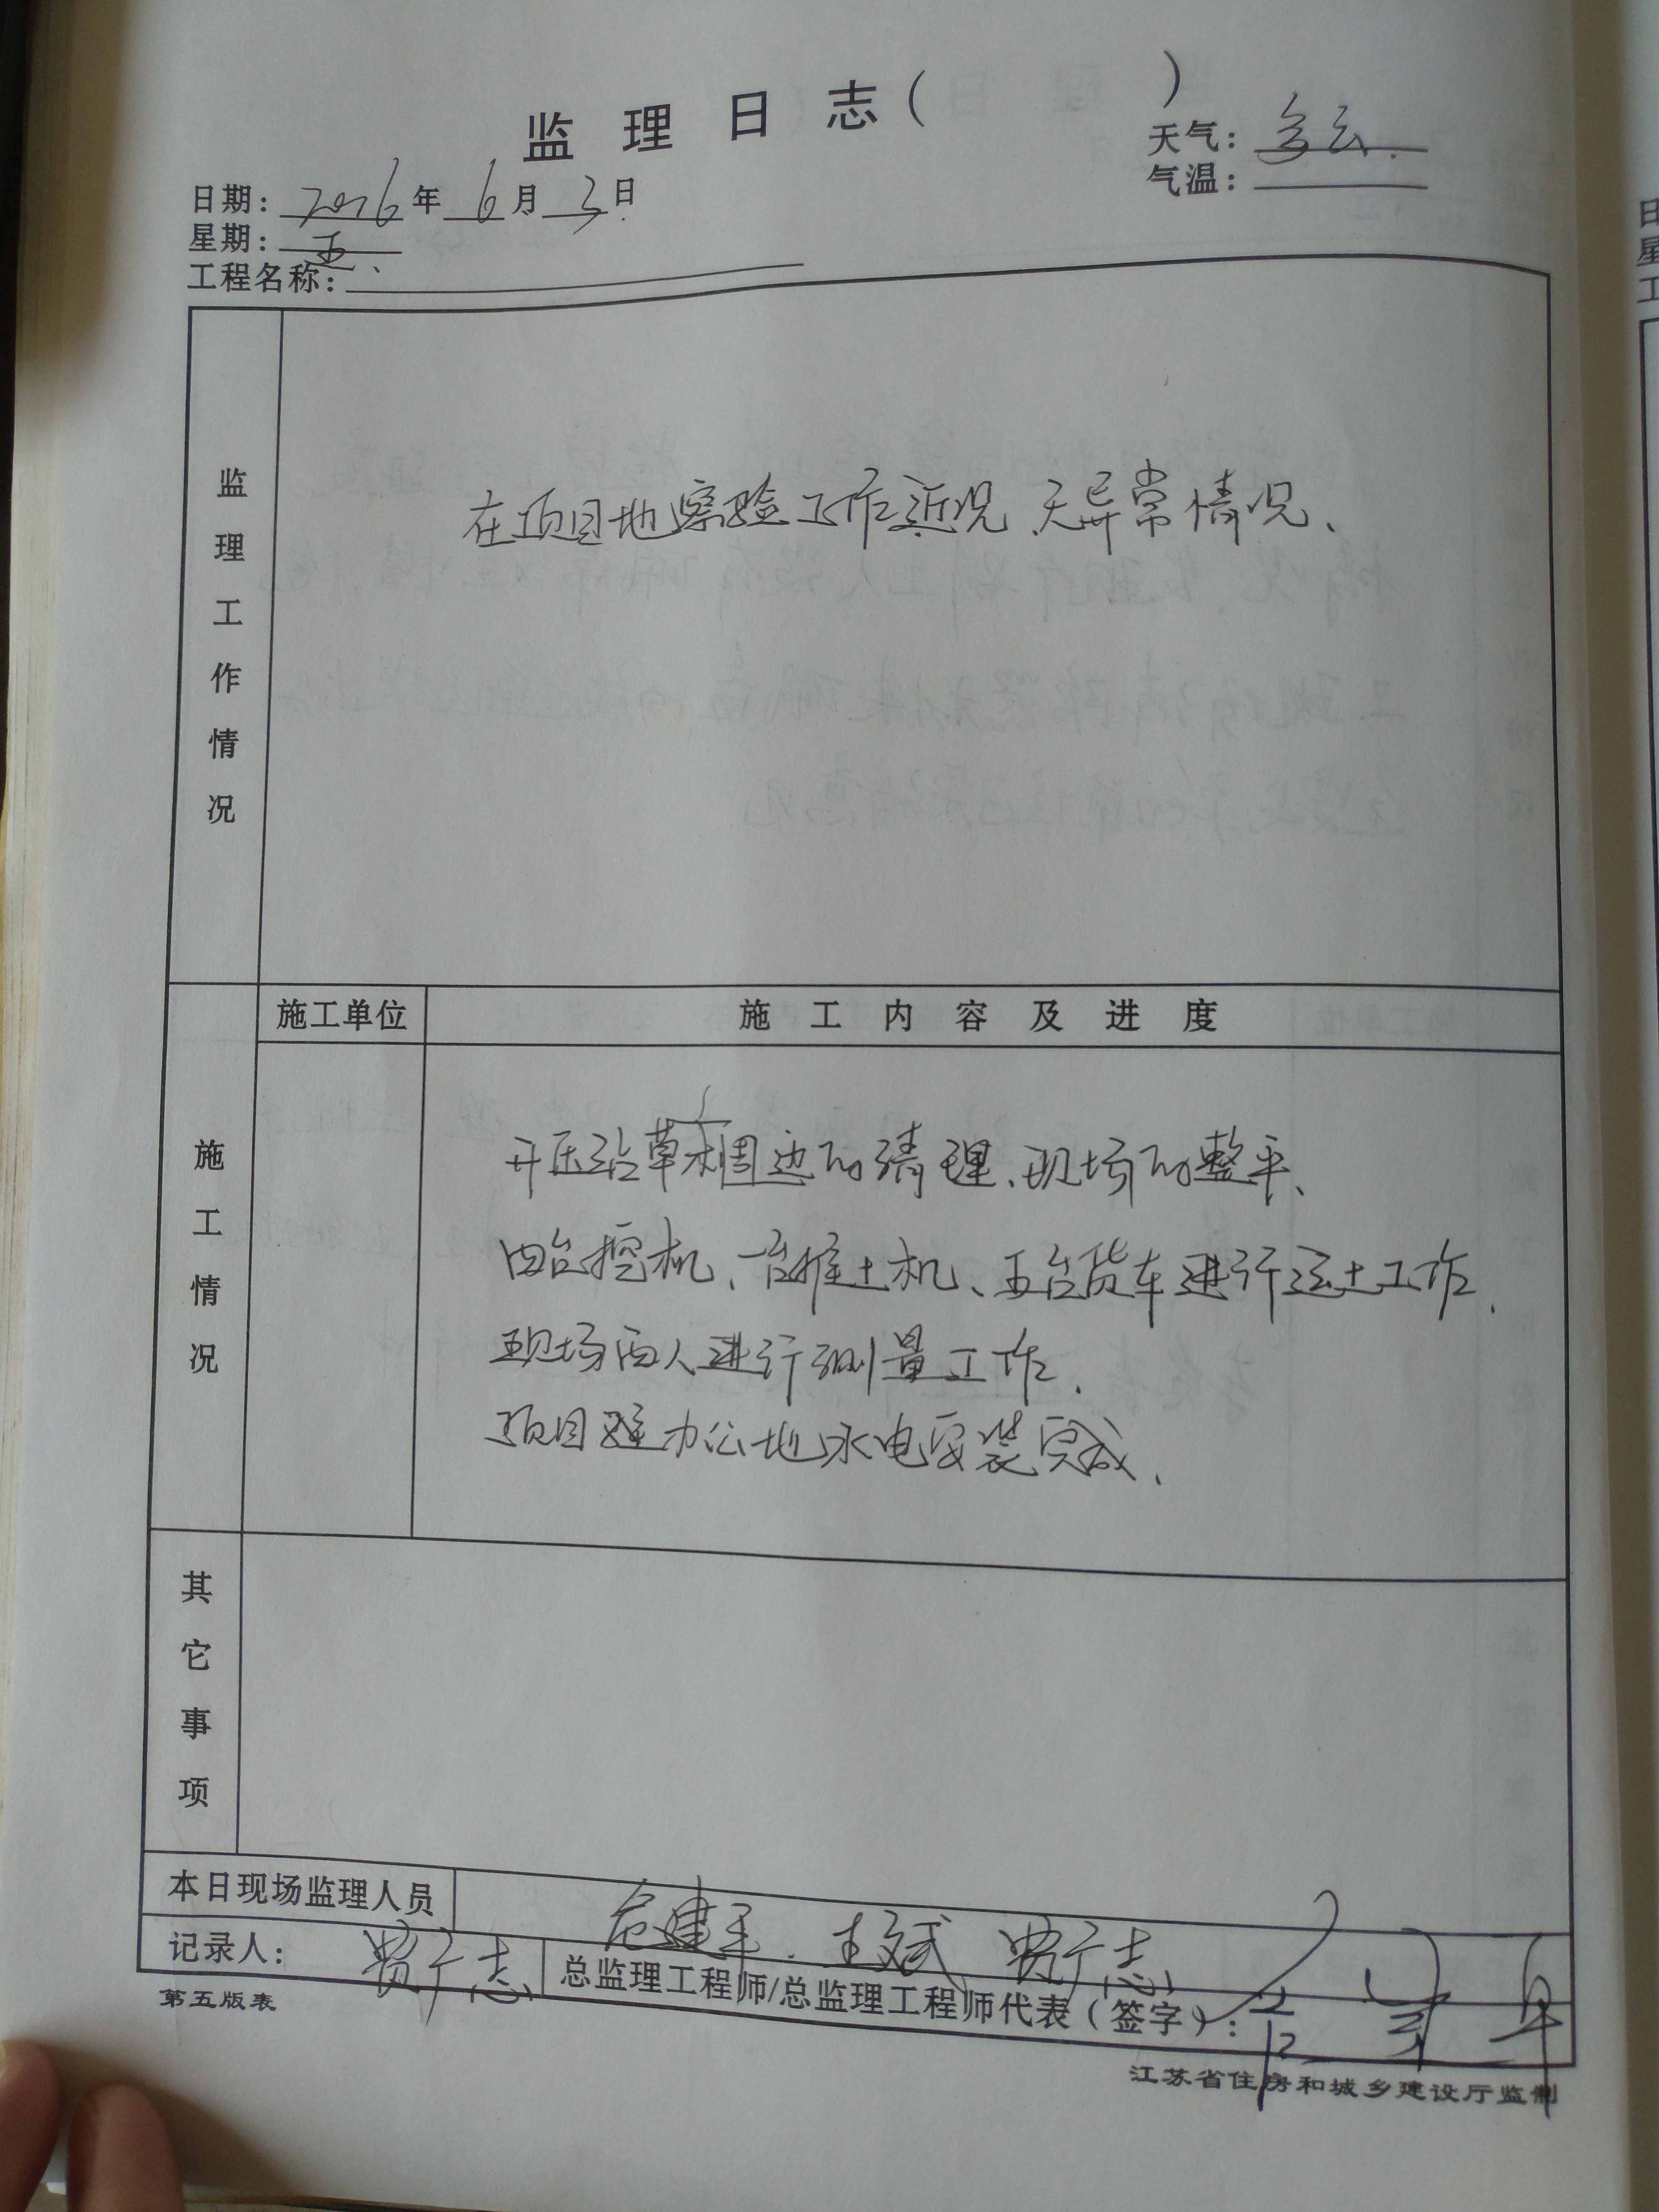 监理日志( )
天气: 多云.
气温:
日期: 2016年 6月 3日
星期: 五、
工程名称:
监理工作情况
在项目地察验工作近况、无异常情况、
施工单位
施工内容及进度
施工情况
开压沿草棚周边的清理、现场的整平、
四台挖机、一台推土机、五台货车进行运土工作.
现场两人进行测量工作.
项目办公地水电安装完成、
其它事项
本日现场监理人员
建平. 王斌 贾广志
记录人: 贾广志
总监理工程师/总监理工程师代表(签字):
第五版表
江苏省住房和城乡建设厅监制